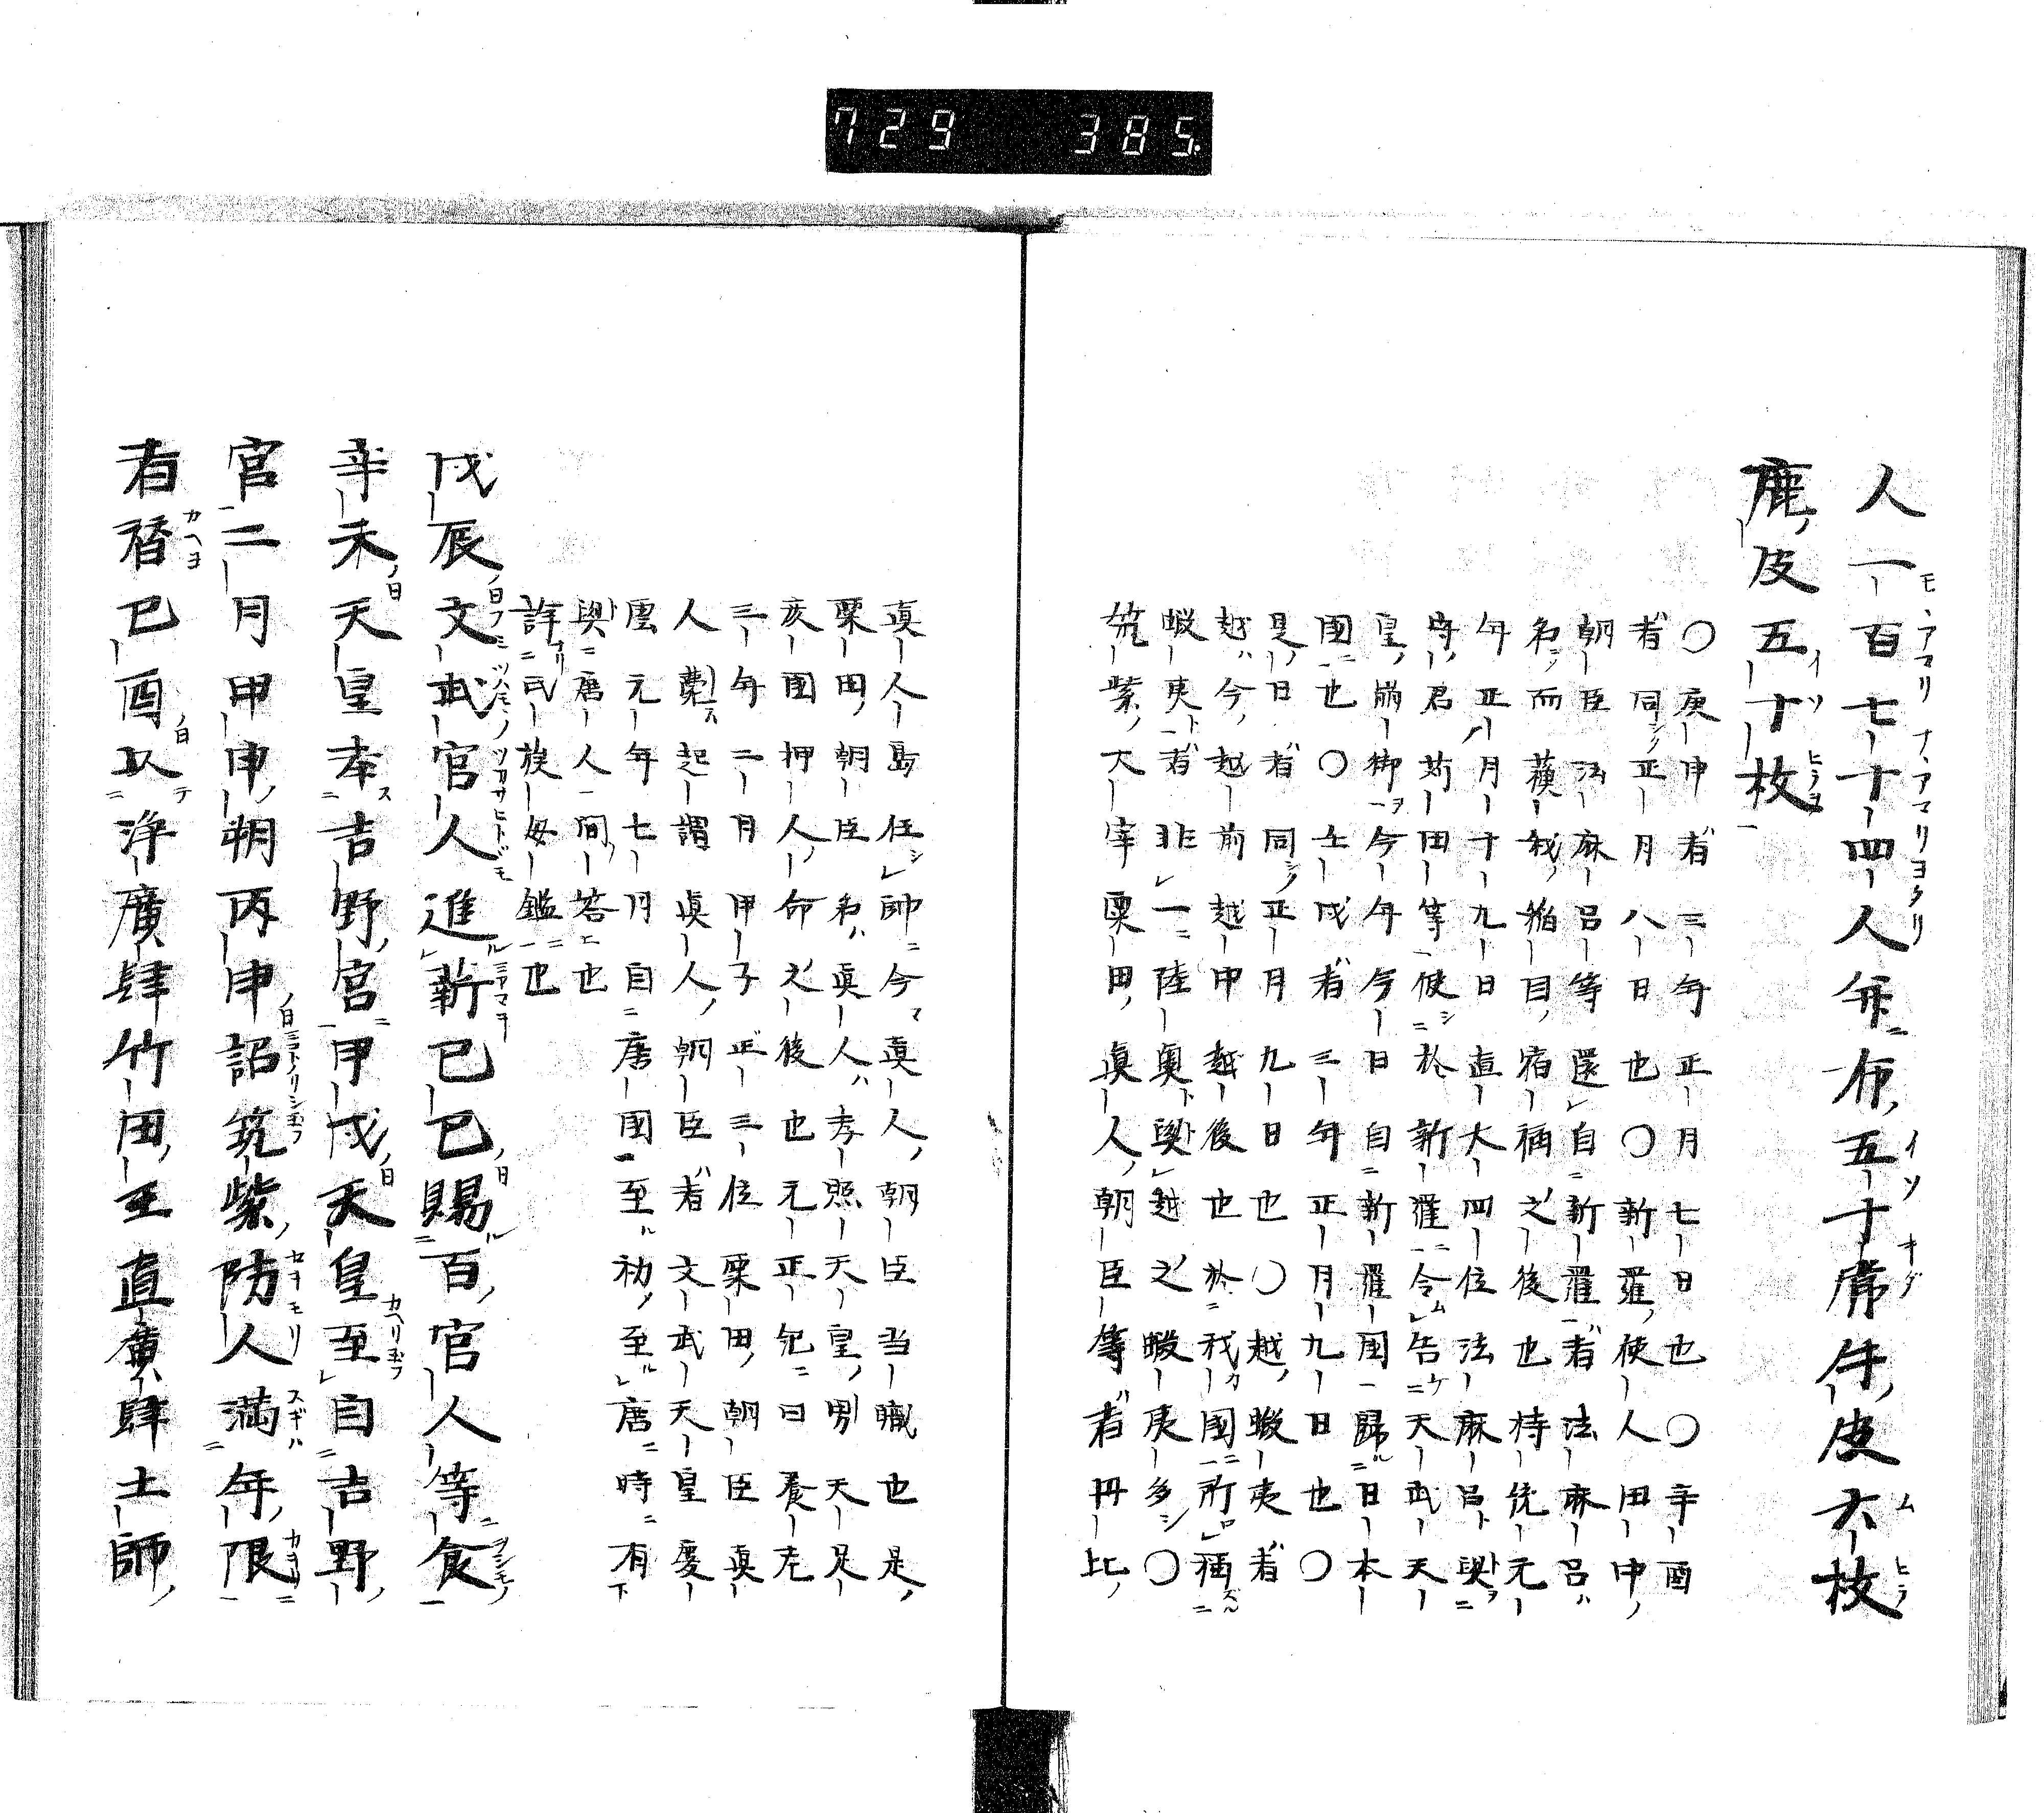 729 385
人一百七十四人并布五十常牛皮六枚
鹿皮五十枚
〇庚申者三年正月七日也〇辛酉
者同正月八日也〇新羅使人田中
朝臣法麻呂等還自新羅者法麻呂ハ
名而蘓我稲目宿祢之後也持統元
年正月十九日直大四位法麻呂與
守君苅田等使於新羅令告天武天
皇崩御今年今日自新羅国歸日本
國也〇壬戌者三年正月九日也〇
是日者同正月九日也〇越蝦夷者
越今越前越中越後也於我國所種
蝦夷者非一陸奥與越之蝦夷多〇
筑紫大宰粟田真人朝臣等者丹比
真人島任帥今真人朝臣当職也是
粟田朝臣名真人孝照天皇男天足
亥國押人命之後也元正紀曰養老
三年二月甲子正三位粟田朝臣真
人薨起謂真人朝臣者文武天皇慶
雲元年七月自唐国至初至唐時有
與唐人問答也
詳氏族母鑑也
戊辰文武官人進薪己巳賜百官人等食
辛未天皇幸吉野宮甲戌天皇至自吉野
宮二月甲申朔丙申詔筑紫防人満年限
者替己酉以浄廣肆竹田王直廣肆土師